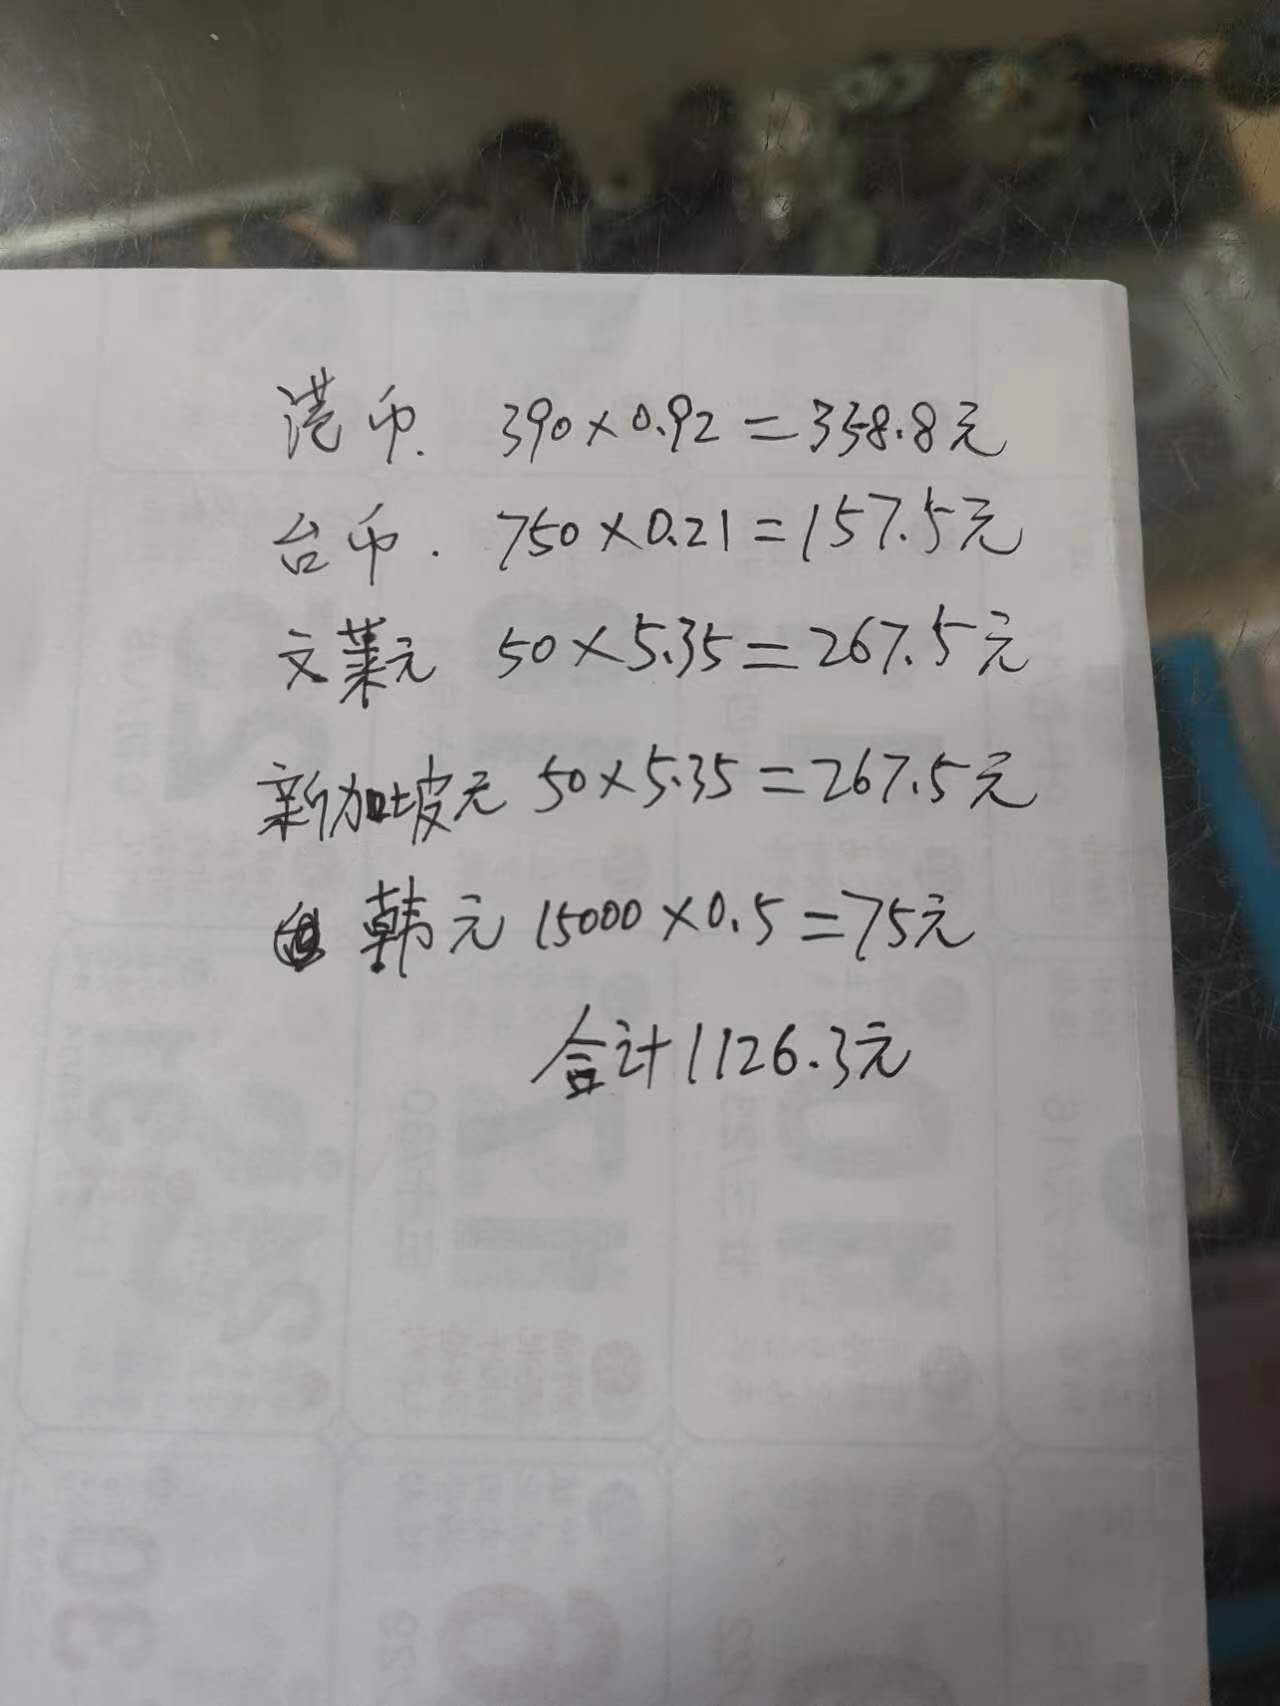 港币. 390×0.92=358.8元
台币. 750×0.21=157.5元
文莱元 50×5.35=267.5元
新加坡元 50×5.35=267.5元
韩元 15000×0.5=75元
合计1126.3元
30